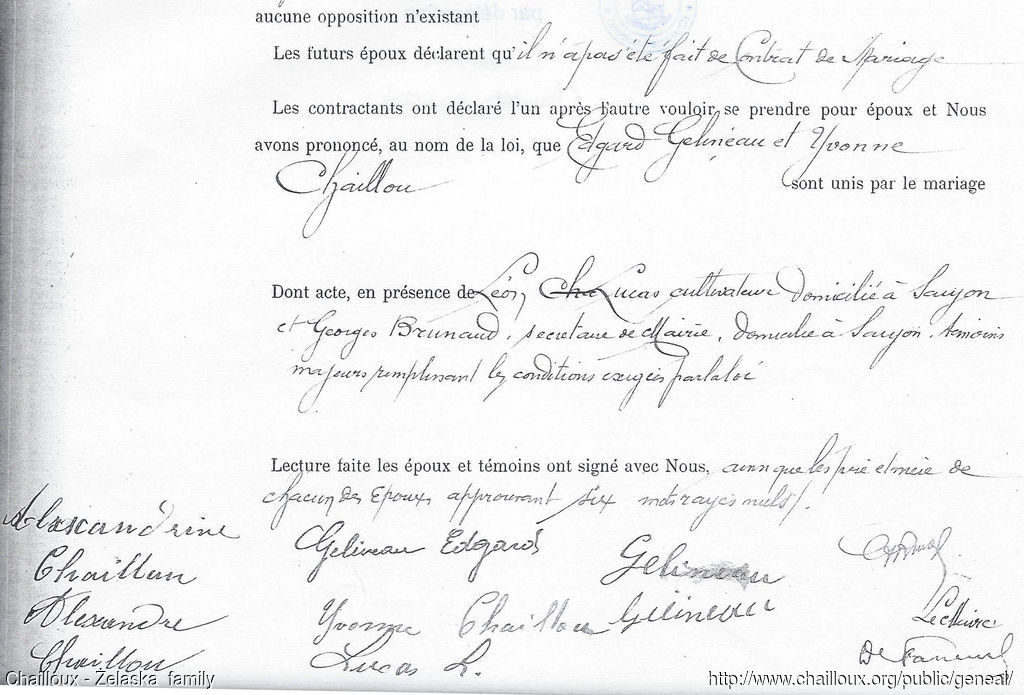 aucune opposition n'existant
Les futurs époux déclarent qu'il n'a pas été fait de Contrat de Mariage
Les contractants ont déclaré l'un après l'autre vouloir se prendre pour époux et Nous
avons prononcé, au nom de la loi, que Edgard Gelineau et Yvonne
Chaillou sont unis par le mariage
Dont acte, en présence de Léon Cha Lucas cultivateur domicilié à Saujon
et Georges Brunaud, secrétaire de Mairie, domicilié à Saujon, témoins
majeurs remplissant les conditions exigées par la loi
Lecture faite les époux et témoins ont signé avec Nous, ainsi que les père et mère de
chacun des Epoux approuvant six mots rayés nuls.
Alexandrine
Chaillou
Alexandre
Chaillou
Gelineau Edgard
Yvonne Chaillou
Lucas L.
Gelineau
Gélineau
Le Maire
Chailloux - Zelaska family
http://www.chailloux.org/public/geneal/